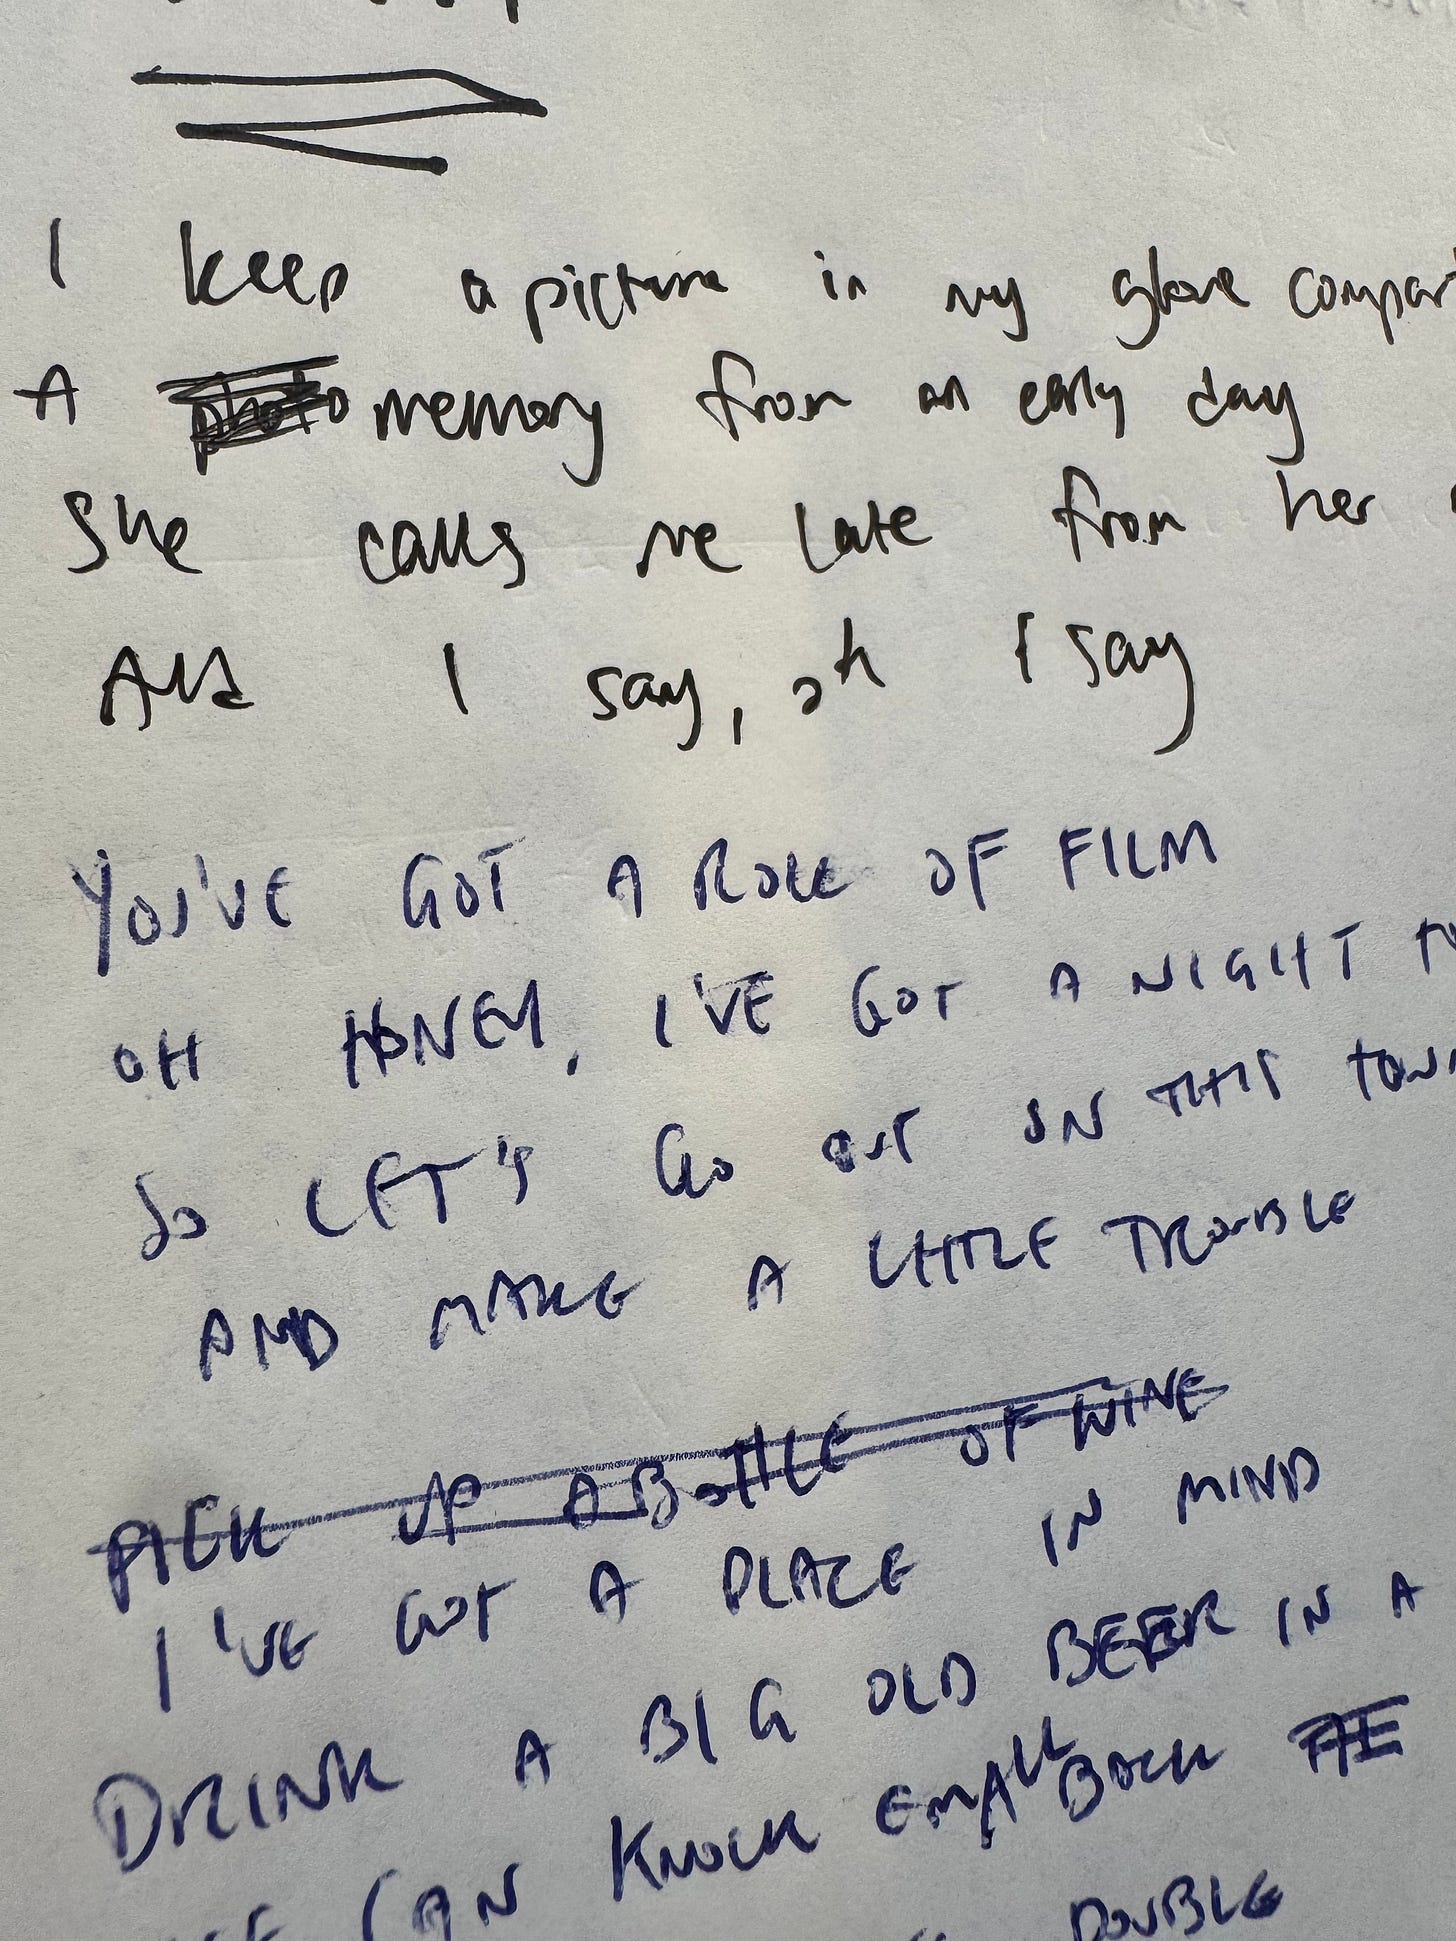 I keep a picture in my glove compar
A photo memory from an early day
She calls me late from her
And I say, oh I say
YOU'VE GOT A ROLL OF FILM
OH HONEY, I'VE GOT A NIGHT TO
SO LET'S GO OUT ON THIS TOWN
AND MAKE A LITTLE TROUBLE
PICK UP A BOTTLE OF WINE
I'VE GOT A PLACE IN MIND
DRINK A BIG OLD BEER IN A
CAN KNOCK EM ALL BACK
DOUBLE